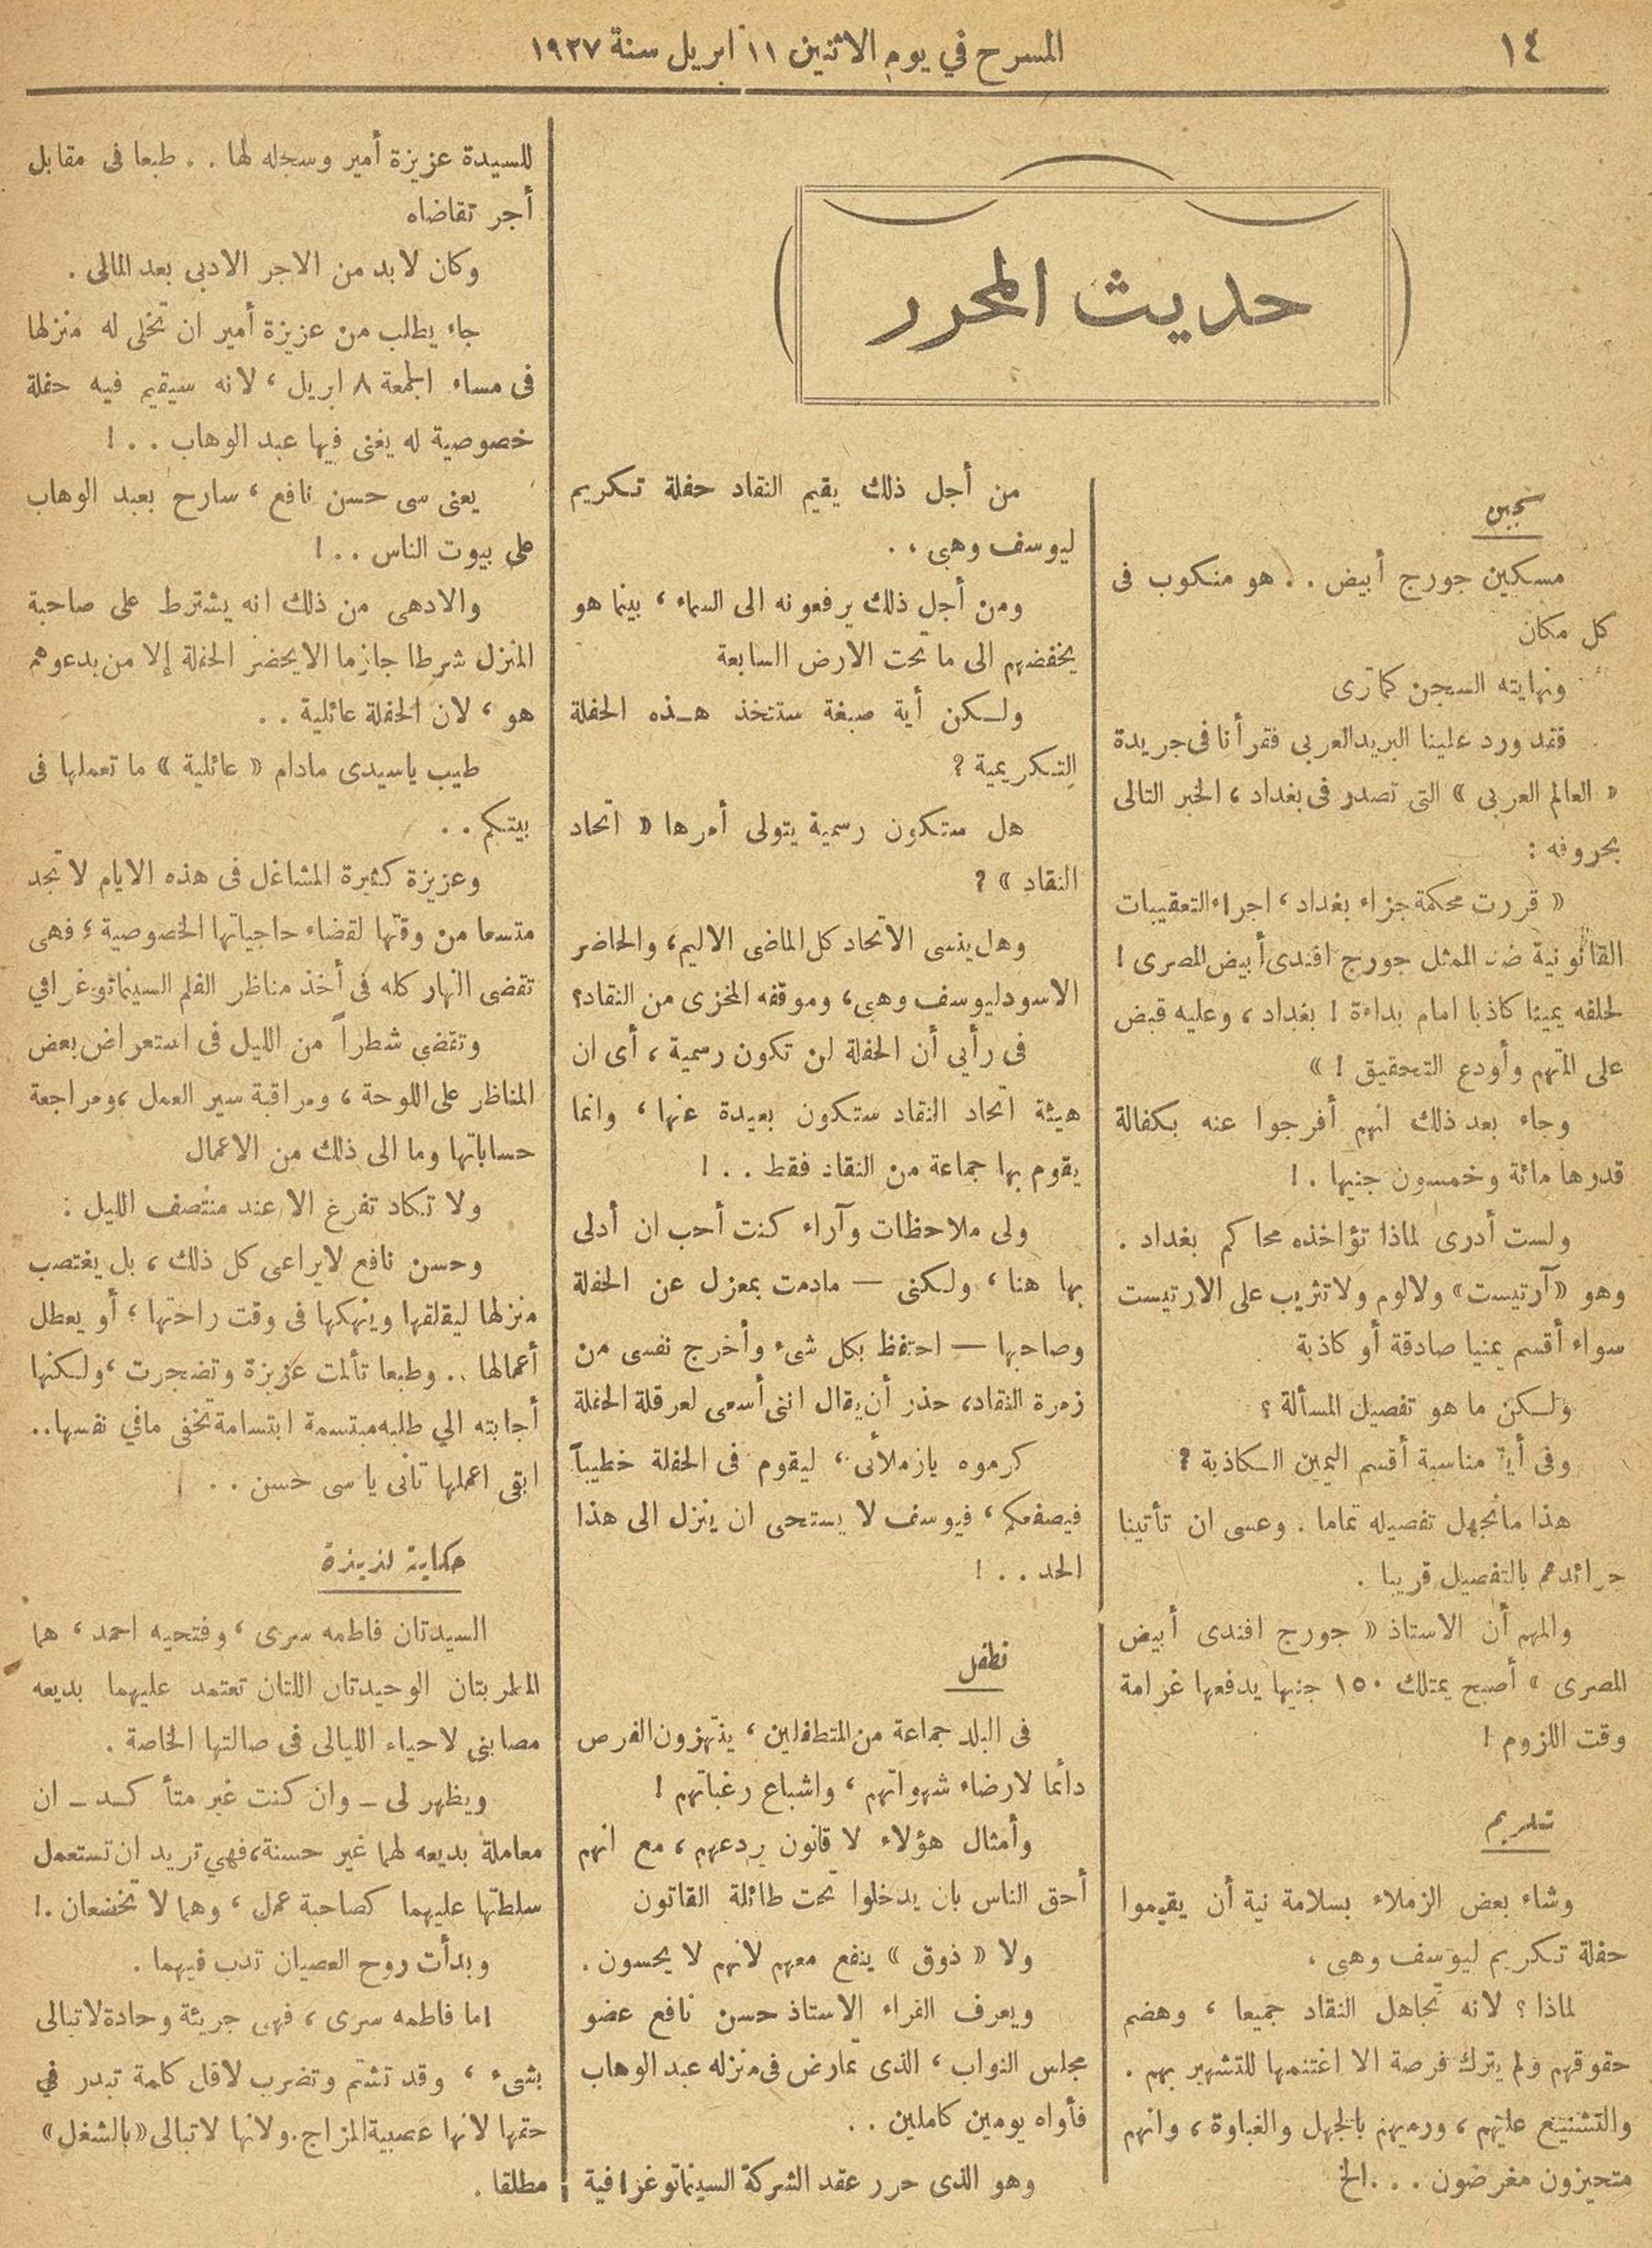 ١٤
المسرح في يوم الاثنين ١١ ابريل سنة ١٩٢٧
حديث المحرر
سجين
مسكين جورج أبيض . . هو منكوب فى
كل مكان
ونهايته السجن كما ترى
فقد ورد علينا البريد العربى فقرأنا فى جريدة
« العالم العربى » التى تصدر فى بغداد ، الخبر التالى
بحروفه :
« قررت محكمة جزاء بغداد ، اجراء التعقيبات
القانونية ضد الممثل جورج افندى أبيض المصرى !
لحلفه يمينا كاذبا امام بداءة ! بغداد ، وعليه قبض
على المتهم وأودع التحقيق ! »
وجاء بعد ذلك انهم أفرجوا عنه بكفالة
قدرها مائة وخمسون جنيها . !
ولست أدرى لماذا تؤاخذه محاكم بغداد .
وهو «آرتيست» ولا لوم ولا تثريب على الارتيست
سواء أقسم يمنيا صادقة أو كاذبة
ولكن ما هو تفصيل المسألة ؟
وفى أية مناسبة أقسم اليمين الكاذبة ؟
هذا ما نجهل تفصيله تماما . وعسى ان تأتينا
جرائدهم بالتفصيل قريبا .
والمهم أن الاستاذ « جورج افندى أبيض
المصرى » أصبح يمتلك ١٥٠ جنيها يدفعها غرامة
وقت اللزوم !
تكريم
وشاء بعض الزملاء بسلامة نية أن يقيموا
حفلة تكريم ليوسف وهبى .
لماذا ؟ لانه تجاهل النقاد جميعا ، وهضم
حقوقهم ولم يترك فرصة الا اغتنمها للتشهير بهم .
والتشنيع عليهم ، ورميهم بالجهل والغباوة ، وانهم
متحيزون مغرضون . . . الخ
من أجل ذلك يقيم النقاد حفلة تكريم
ليوسف وهبى . .
ومن أجل ذلك يرفعونه الى السماء ، بينما هو
يخفضهم الى ما تحت الارض السابعة
ولكن أية صبغة ستتخذ هذه الحفلة
التكريمية ؟
هل ستكون رسمية يتولى أمرها « اتحاد
النقاد » ؟
وهل ينسى الاتحاد كل الماضى الاليم ، والحاضر
الاسود ليوسف وهبى ، وموقفه المخزى من النقاد ؟
فى رأيي أن الحفلة لن تكون رسمية ، أى ان
هيئة اتحاد النقاد ستكون بعيدة عنها ، وانما
يقوم بها جماعة من النقاد فقط . . !
ولى ملاحظات وآراء كنت أحب ان أدلى
بها هنا ، ولكنى — مادمت بمعزل عن الحفلة
وصاحبها — احتفظ بكل شىء وأخرج نفسى من
زمرة النقاد ، حذر أن يقال اننى أسعى لعرقلة الحفلة
كرموه يازملائى ، ليقوم فى الحفلة خطيباً
فيصفعكم ، فيوسف لا يستحى ان ينزل الى هذا
الحد . . !
تطفل
فى البلد جماعة من المتطفلين ، ينتهزون الفرص
دائما لارضاء شهواتهم ، واشباع رغباتهم !
وأمثال هؤلاء لا قانون يردعهم ، مع انهم
أحق الناس بان يدخلوا تحت طائلة القانون
ولا « ذوق » ينفع معهم لانهم لا يحسون .
ويعرف القراء الاستاذ حسن نافع عضو
مجلس النواب ، الذى تمارض فى منزله عبد الوهاب
فأواه يومين كاملين . .
وهو الذى حرر عقد الشركة السينماتوغرافية
للسيدة عزيزة أمير وسجله لها . . طبعا فى مقابل
أجر تقاضاه
وكان لابد من الاجر الادبى بعد المالى .
جاء يطلب من عزيزة أمير ان تخلى له منزلها
فى مساء الجمعة ٨ ابريل ، لانه سيقيم فيه حفلة
خصوصية له يغنى فيها عبد الوهاب . . !
يعنى سى حسن نافع ، سارح بعبد الوهاب
على بيوت الناس . . !
والادهى من ذلك انه يشترط على صاحبة
المنزل شرطا جازما الا يحضر الحفلة إلا من يدعوهم
هو ، لان الحفلة عائلية . .
طيب ياسيدى مادام « عائلية » ما تعملها فى
بيتكم . .
وعزيزة كثيرة المشاغل فى هذه الايام لا تجد
متسعا من وقتها لقضاء حاجياتها الخصوصية ؛ فهى
تقضى النهار كله فى أخذ مناظر الفلم السينماتوغرافي
وتقضي شطراً من الليل فى استعراض بعض
المناظر على اللوحة ، ومراقبة سير العمل ، ومراجعة
حساباتها وما الى ذلك من الاعمال
ولا تكاد تفرغ الا عند منتصف الليل :
وحسن نافع لايراعى كل ذلك ، بل يغتصب
منزلها ليقلقها وينهكها فى وقت راحتها ؛ أو يعطل
أعمالها . . وطبعا تألمت عزيزة وتضجرت ، ولكنها
أجابته الي طلبه مبتسمة ابتسامة تخفى مافي نفسها . .
ابقى اعملها تانى يا سى حسن . . !
حكاية لذيذة
السيدتان فاطمه سرى ، وفتحيه احمد ، هما
المطربتان الوحيدتان اللتان تعتمد عليهما بديعه
مصابنى لاحياء الليالى فى صالتها الخاصة .
ويظهر لى — وان كنت غير متأكد — ان
معاملة بديعه لهما غير حسنة ، فهي تريد ان تستعمل
سلطتها عليهما كصاحبة عمل ، وهما لا تخضعان . !
وبدأت روح العصيان تدب فيهما .
اما فاطمه سرى ، فهى جريئة وحادة لا تبالى
بشىء ، وقد تشتم وتضرب لاقل كلمة تبدر في
حقها لانها عصبية المزاج . ولانها لا تبالى «بالشغل»
مطلقا .